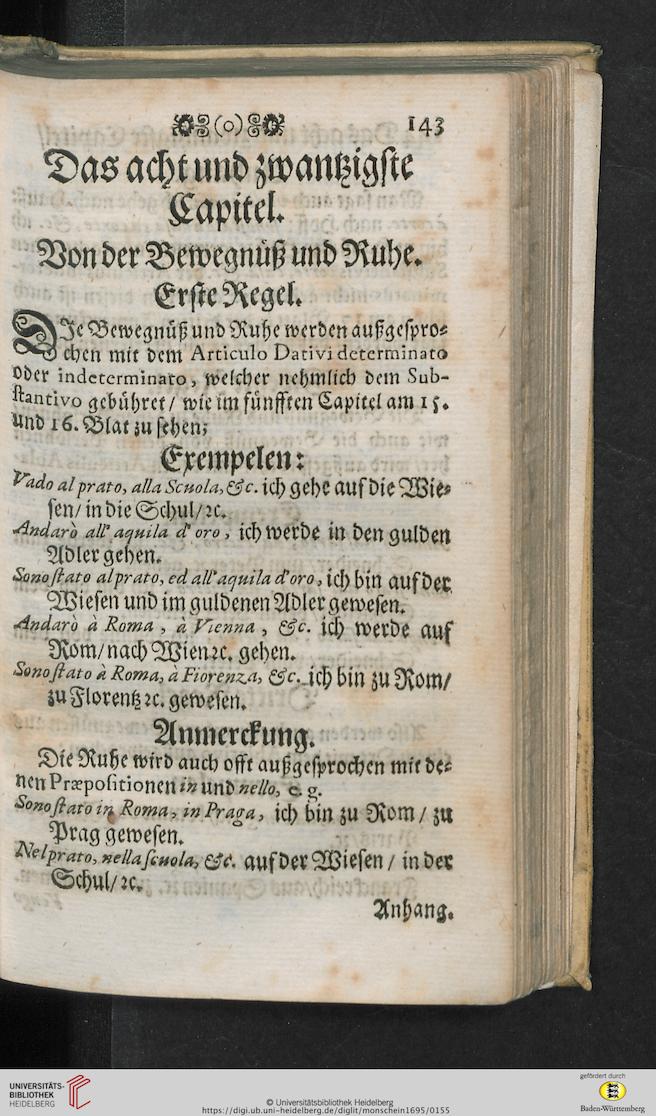 (o) 143
Das acht und zwantzigste
Capitel.
Von der Bewegnüß und Ruhe.
Erste Regel.
DIe Bewegnüß und Ruhe werden außgespro-
chen mit dem Articulo Dativi determinato
oder indeterminato, welcher nehmlich dem Sub-
stantivo gebühret / wie im fünfften Capitel am 15.
und 16. Blat zu sehen;
Exempelen:
Vado al prato, alla Scuola, &c. ich gehe auf die Wie-
sen / in die Schul / ꝛc.
Andarò all' aquila d' oro, ich werde in den gulden
Adler gehen.
Sono stato al prato, ed all' aquila d'oro, ich bin auf der
Wiesen und im guldenen Adler gewesen.
Andarò à Roma, à Vienna, &c. ich werde auf
Rom / nach Wien ꝛc. gehen.
Sono stato à Roma, à Fiorenza, &c. ich bin zu Rom /
zu Florentz ꝛc. gewesen.
Anmerckung.
Die Ruhe wird auch offt außgesprochen mit de-
nen Præpositionen in und nello, e. g.
Sono stato in Roma, in Praga, ich bin zu Rom / zu
Prag gewesen.
Nel prato, nella scuola, &c. auf der Wiesen / in der
Schul / ꝛc.
Anhang.
UNIVERSITÄTS-
BIBLIOTHEK
HEIDELBERG
© Universitätsbibliothek Heidelberg
https://digi.ub.uni-heidelberg.de/diglit/monschein1695/0155
gefördert durch
Baden-Württemberg